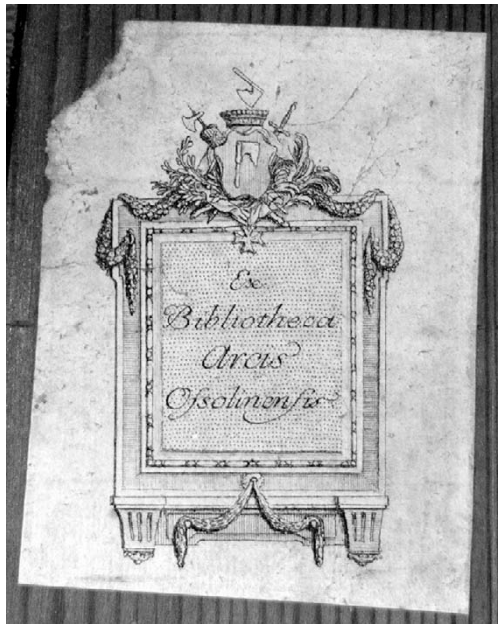 Ex
Bibliotheca
Arcis
Ofsolinensis